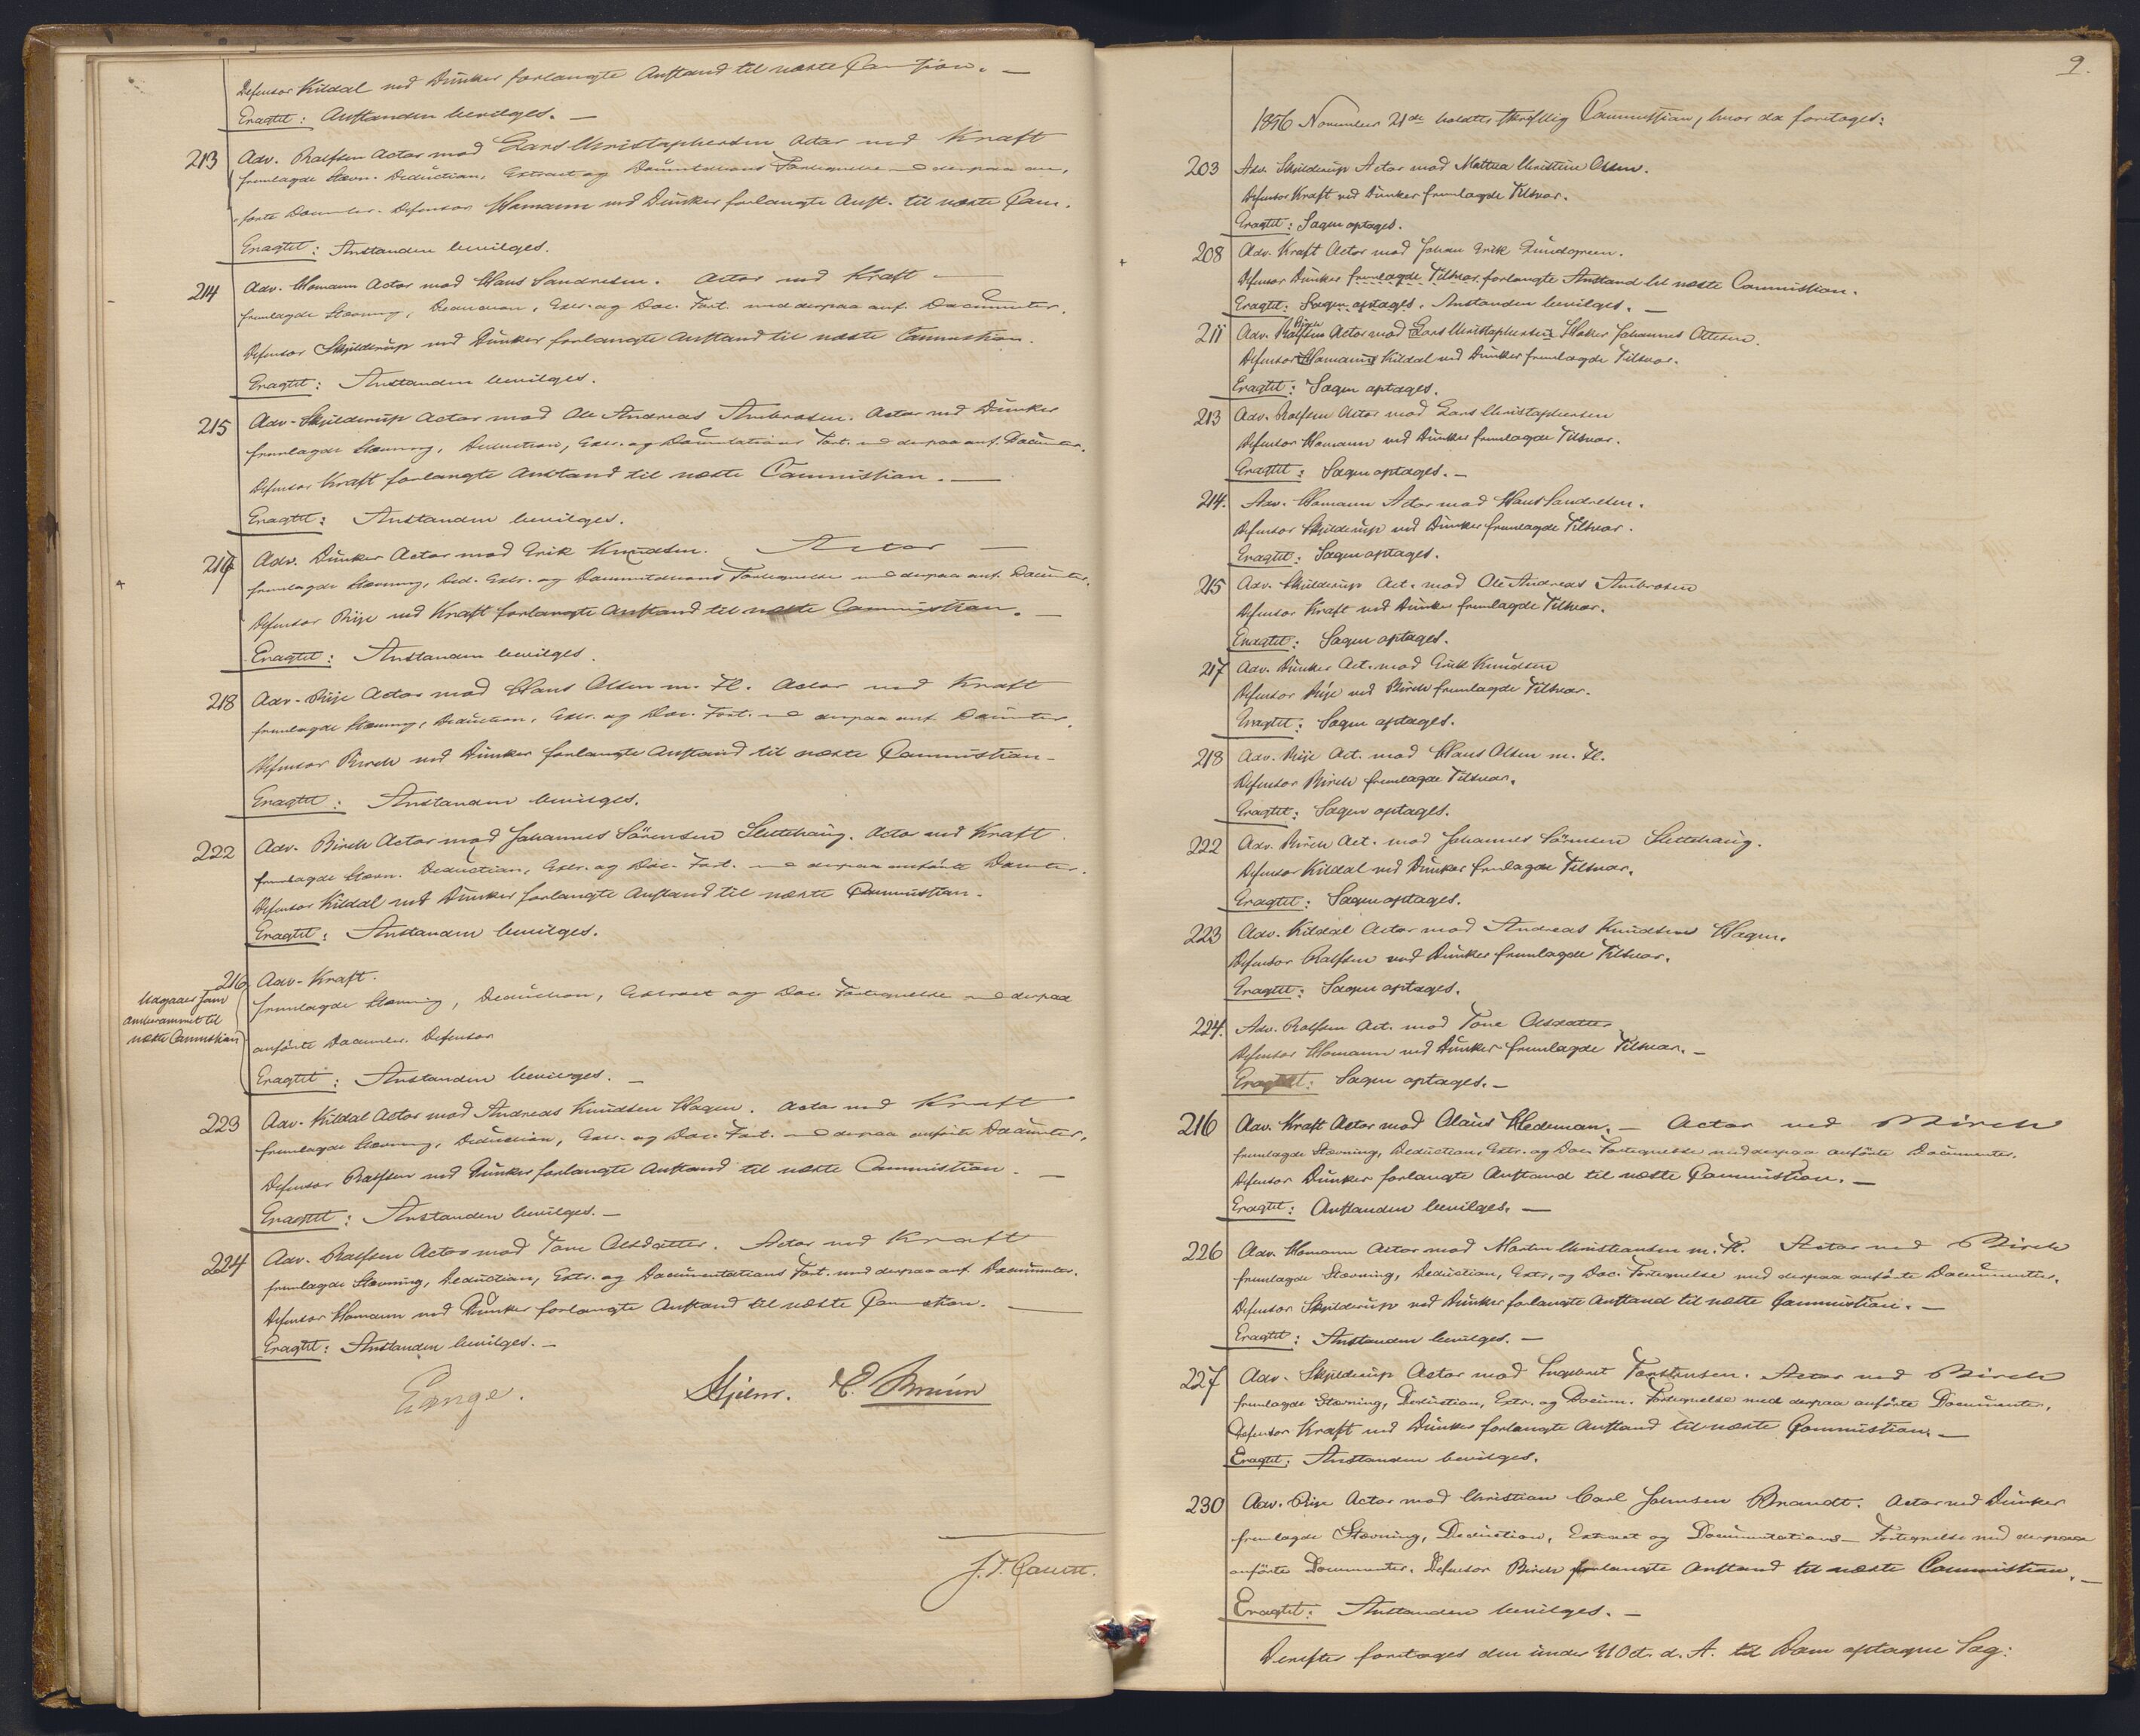 Defensor Kildal ved Dunker forlangte Anstand til næste Commission. —
Eragtet: Anstanden bevilges. —
213 Adv. Rolfsen Actor mod Lars Christophersen Actor ved Kraft
fremlagde Stævn. Deduction, Extract og Documentations Fortegnelse med derpaa an-
førte Documter. Defensor Homann ved Dunker forlangte Anst. til næste Com.
Eragtet: Anstanden bevilges.
214 Adv. Homann Actor mod Hans Sandresen. Actor ved Kraft —
fremlagde Stævning, Deduction, Extr. og Doc. Fort. med derpaa anf. Documenter.
Defensor Skjilderup ved Dunker forlangte Anstand til næste Commission.
Eragtet: Anstanden bevilges.
215 Adv. Skjilderup Actor mod Ole Andreas Ambrosen. Actor ved Dunker
fremlagde Stævning, Deduction, Extr. og Documtations Fort. med derpaa anf. Documter.
Defensor Kraft forlangte Anstand til næste Commission. —
Eragtet: Anstanden bevilges.
217 Adv. Dunker Actor mod Erik Knudsen. Actor —
fremlagde Stævning, Ded. Extr. og Documentations Fortegnelse med derpaa anf. Documter.
Defensor Rije ved Kraft forlangte Anstand til næste Commission. —
Eragtet: Anstanden bevilges.
218 Adv. Rije Actor mod Hans Olsen m. Fl. Actor ved Kraft
fremlagde Stævning, Deduction, Extr. og Doc. Fort. med derpaa anf. Documter.
Defensor Birch ved Dunker forlangte Anstand til næste Commission —
Eragtet: Anstanden bevilges.
222 Adv. Birch Actor mod Johannes Sörensen Slettehaug. Actor ved Kraft
fremlagde Stævn. Deduction, Extr. og Doc. Fort. med derpaa anförte Documter.
Defensor Kildal ved Dunker forlangte Anstand til næste Commission.
Eragtet: Anstanden bevilges.
216 Adv. Kraft.
Udgaaer som
fremlagde Stævning, Deduction, Extract og Doc. Fortegnelse med derpaa
omberammet til
næste Commission
anförte Documter. Defensor
Eragtet: Anstanden bevilges. —
223 Adv. Kildal Actor mod Andreas Knudsen Hagen. Actor ved Kraft
fremlagde Stævning, Deduction, Extr. og Doc. Fort. med derpaa anförte Documter.
Defensor Rolfsen ved Dunker forlangte Anstand til næste Commission. —
Eragtet: Anstanden bevilges. —
224 Adv. Rolfsen Actor mod Tone Olsdatter. Actor ved Kraft
fremlagde Stævning, Deduction, Extr. og Documentations Fort. med derpaa anf. Documenter.
Defensor Homann ved Dunker forlangte Anstand til næste Commission. —
Eragtet: Anstanden bevilges. —
Lange. Hjelm. E. Bruun
9.
1846 November 21de holdtes skriftlig Commission, hvor da foretoges:
203 Adv. Skjilderup Actor mod Mathea Christine Olsen.
Defensor Kraft ved Dunker fremlagde Tilsvar.
Eragtet: Sagen optages.
208 Adv. Kraft Actor mod Johan Erik Lundgreen.
Defensor Dunker fremlagde Tilsvar. forlangte Anstand til næste Commission.
Eragtet: Sagen optages. Anstanden bevilges. —
211 Adv. Rolfsen Rije Actor mod Lars Christophersen Johannes Ottesen.
Defensor Homann Kildal ved Dunker fremlagde Tilsvar.
Eragtet: Sagen optages.
213 Adv. Rolfsen Actor mod Lars Christophersen
Defensor Homann ved Dunker fremlagde Tilsvar.
Eragtet: Sagen optages. —
214. Adv. Homann Actor mod Hans Sandresen.
Defensor Skjilderup ved Dunker fremlagde Tilsvar.
Eragtet: Sagen optages.
215 Adv. Skjilderup Act. mod Ole Andreas Ambrosen
Defensor Kraft ved Dunker fremlagde Tilsvar.
Eragtet: Sagen optages.
217 Adv. Dunker Act. mod Erik Knudsen
Defensor Rije ved Birch fremlagde Tilsvar.
Eragtet: Sagen optages.
218 Adv. Rije Act. mod Hans Olsen m. Fl.
Defensor Birch fremlagde Tilsvar.
Eragtet: Sagen optages.
222 Adv. Birch Act. mod Johannes Sörensen Slettehaug.
Defensor Kildal ved Dunker fremlagde Tilsvar.
Eragtet: Sagen optages.
223 Adv. Kildal Actor mod Andreas Knudsen Hagen.
Defensor Rolfsen ved Dunker fremlagde Tilsvar.
Eragtet: Sagen optages.
224. Adv. Rolfsen Act. mod Tone Olsdatter
Defensor Homann ved Dunker fremlagde Tilsvar. —
Eragtet: Sagen optages. —
216 Adv. Kraft Actor mod Claus Hedeman. — Actor ved Birch
fremlagde Stævning, Deduction, Extr. og Doc. Fortegnelse med derpaa anförte Documenter.
Defensor Dunker forlangte Anstand til næste Commission. —
Eragtet: Anstanden bevilges. —
226 Adv. Homann Actor mod Martin Christiansen m. Fl. Actor ved Birch
fremlagde Stævning, Deduction, Extr. og Doc. Fortegnelse med derpaa anförte Documenter.
Defensor Skjilderup ved Dunker forlangte Anstand til næste Commission. —
Eragtet: Anstanden bevilges. —
227 Adv. Skjilderup Actor mod Ingebret Torstensen. Actor ved Birch
fremlagde Stævning, Deduction, Extr. og Docum. Fortegnelse med derpaa anförte Documenter.
Defensor Kraft ved Dunker forlangte Anstand til næste Commission. —
Eragtet: Anstanden bevilges.
230 Adv. Rije Actor mod Christian Carl Johnsen Brandt. Actor ved Dunker
fremlagde Stævning, Deduction, Extract og Documentations- Fortegnelse med derpaa
anförte Documenter. Defensor Birch forlangte Anstand til næste Commission. —
Eragtet: Anstanden bevilges. —
Derefter foretoges den under d. A. til Dom optagne Sag: